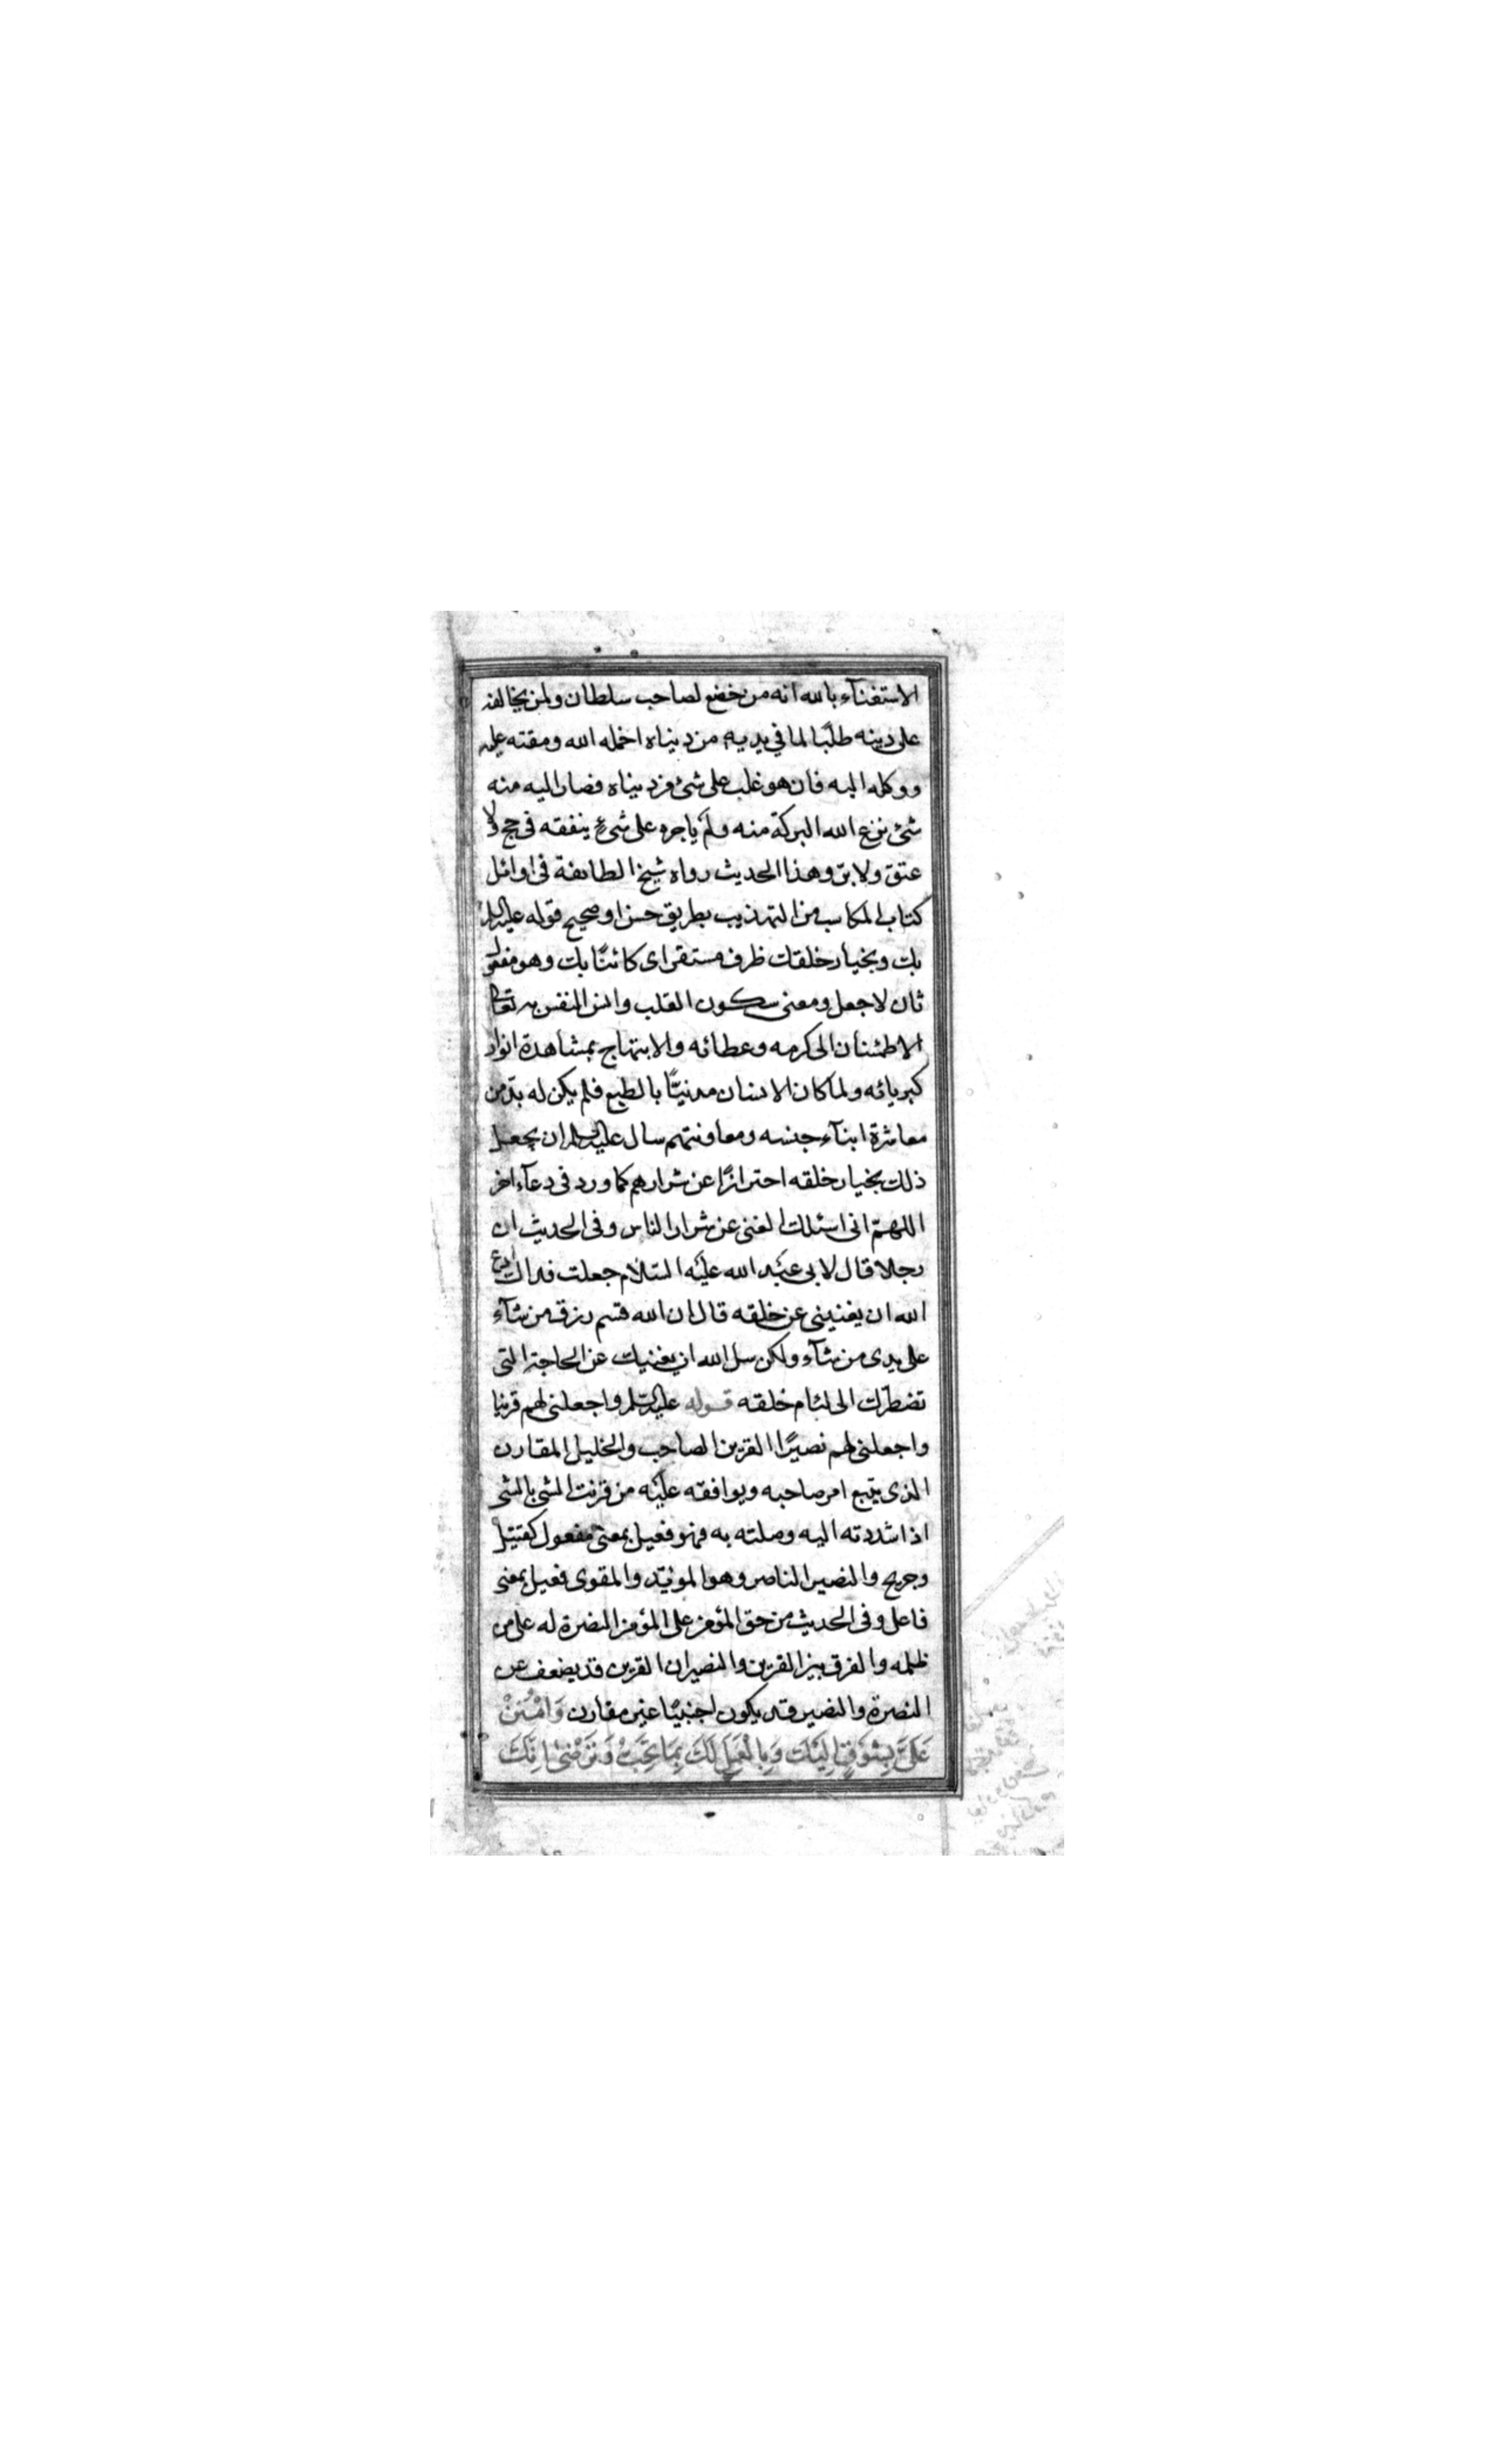 الاستغنآء بالله انه من خضع لصاحب سلطان ولمن يخالفه
على دينه طلبًا لما في يديه من دنياه اخمله الله ومقته عليه
ووكله اليه فان هو غلب على شئ من دنياه فصار اليه منه
شئ نزع الله البركة منه ولم ياجره على شئ ينفقه في حج ولا
عتق ولا بر وهذا الحديث رواه شيخ الطائفة في اوائل
كتاب المكاسب من التهذيب بطريق حسن او صحيح قوله عليه السلم
بك وبخيار خلقك ظرف مستقر اى كائنًا بك وهو مفعول
ثان لاجعل ومعنى سكون القلب وانس النفس به تعالى
الاطمئنان الى كرمه وعطائه والابتهاج بمشاهدة انوار
كبريائه ولما كان الانسان مدنيًّا بالطبع فلم يكن له بدّ من
معاشرة ابنآء جنسه ومعاونتهم سال عليه السلم ان يجعل
ذلك بخيار خلقه احترازًا عن شرارهم كما ورد في دعآء اخر
اللهمّ انى اسئلك الغنى عن شرار الناس وفى الحديث ان
رجلا قال لابى عبد الله عليه السّلام جعلت فداك ادع
الله ان يغنينى عن خلقه قال ان الله قسم رزق من شآء
على يدى من شآء ولكن سل الله ان يغنيك عن الحاجة التى
تضطرّك الى لئام خلقه قوله عليه السّلم واجعلنى لهم قرينا
واجعلنى لهم نصيرًا القرين الصاحب والخليل المقارن
الذى يتبع امر صاحبه ويوافقه عليه من قرنت الشئ بالشئ
اذا شددته اليه وصلته به فهو فعيل بمعنى مفعول كقتيل
وجريح والنصير الناصر وهو الموئيّد والمقوى فعيل بمعنى
فاعل وفى الحديث من حق المؤمن على المؤمن النصرة له على من
ظلمه والفرق بين القرين والنصير ان القرين قد يضعف عن
النصرة والنصير قد يكون اجنبيًا غير مقارن وَامْنُنْ
عَلَىَّ بِشَوْقٍ اِلَيْكَ وَبِالْعَمَلِ لَكَ بِمَا تُحِبُّ وَتَرْضٰى اِنَّكَ